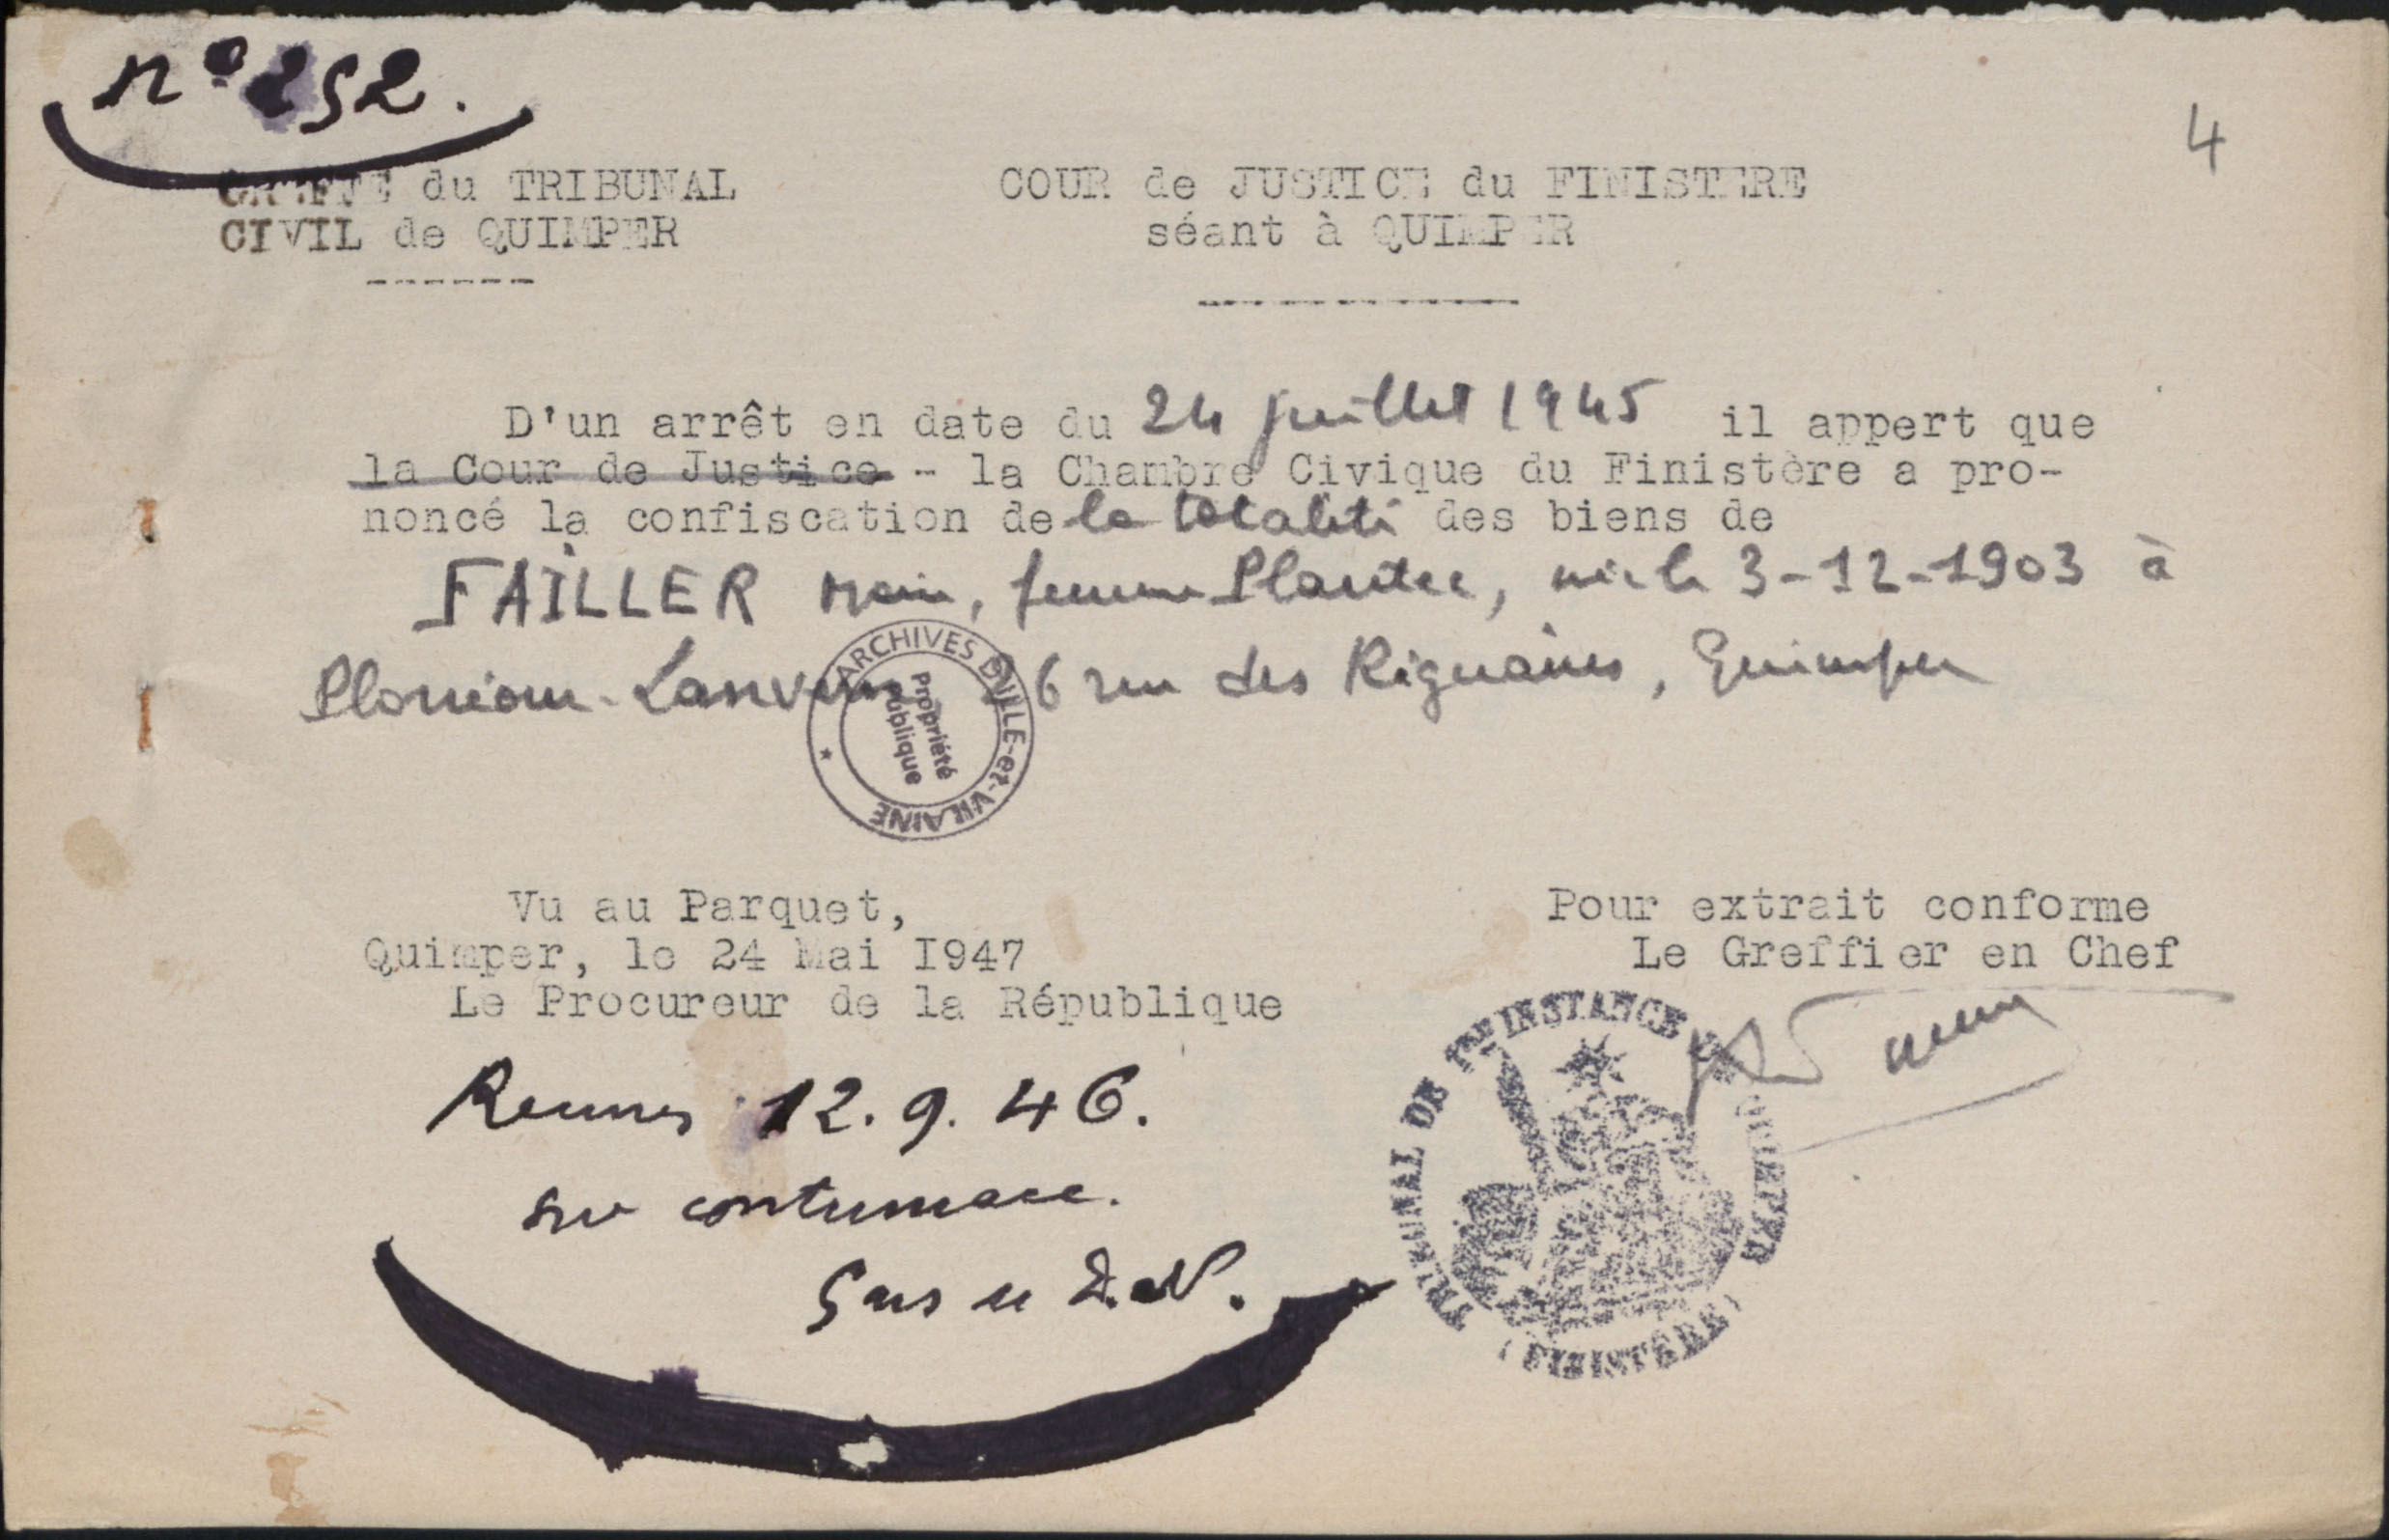 n° 252.
4
GREFFE du TRIBUNAL
CIVIL de QUIMPER
COUR de JUSTICE du FINISTERE
séant à QUIMPER
D'un arrêt en date du 24 juillet 1945 il appert que
la Cour de Justice - la Chambre Civique du Finistère a pro-
noncé la confiscation de la totalité des biens de
FAILLER Marie, femme Plantec, née le 3-12-1903 à
Plonéour-Lanvern 26 rue des Réguaires, Quimper
ARCHIVES D'ILLE-et-VILAINE
Propriété
Publique
Vu au Parquet,
Quimper, le 24 Mai 1947
Le Procureur de la République
Pour extrait conforme
Le Greffier en Chef
TRIBUNAL DE 1re INSTANCE DE QUIMPER
(FINISTÈRE)
Rennes 12.9.46.
sur contumace.
5 ans de D.N.